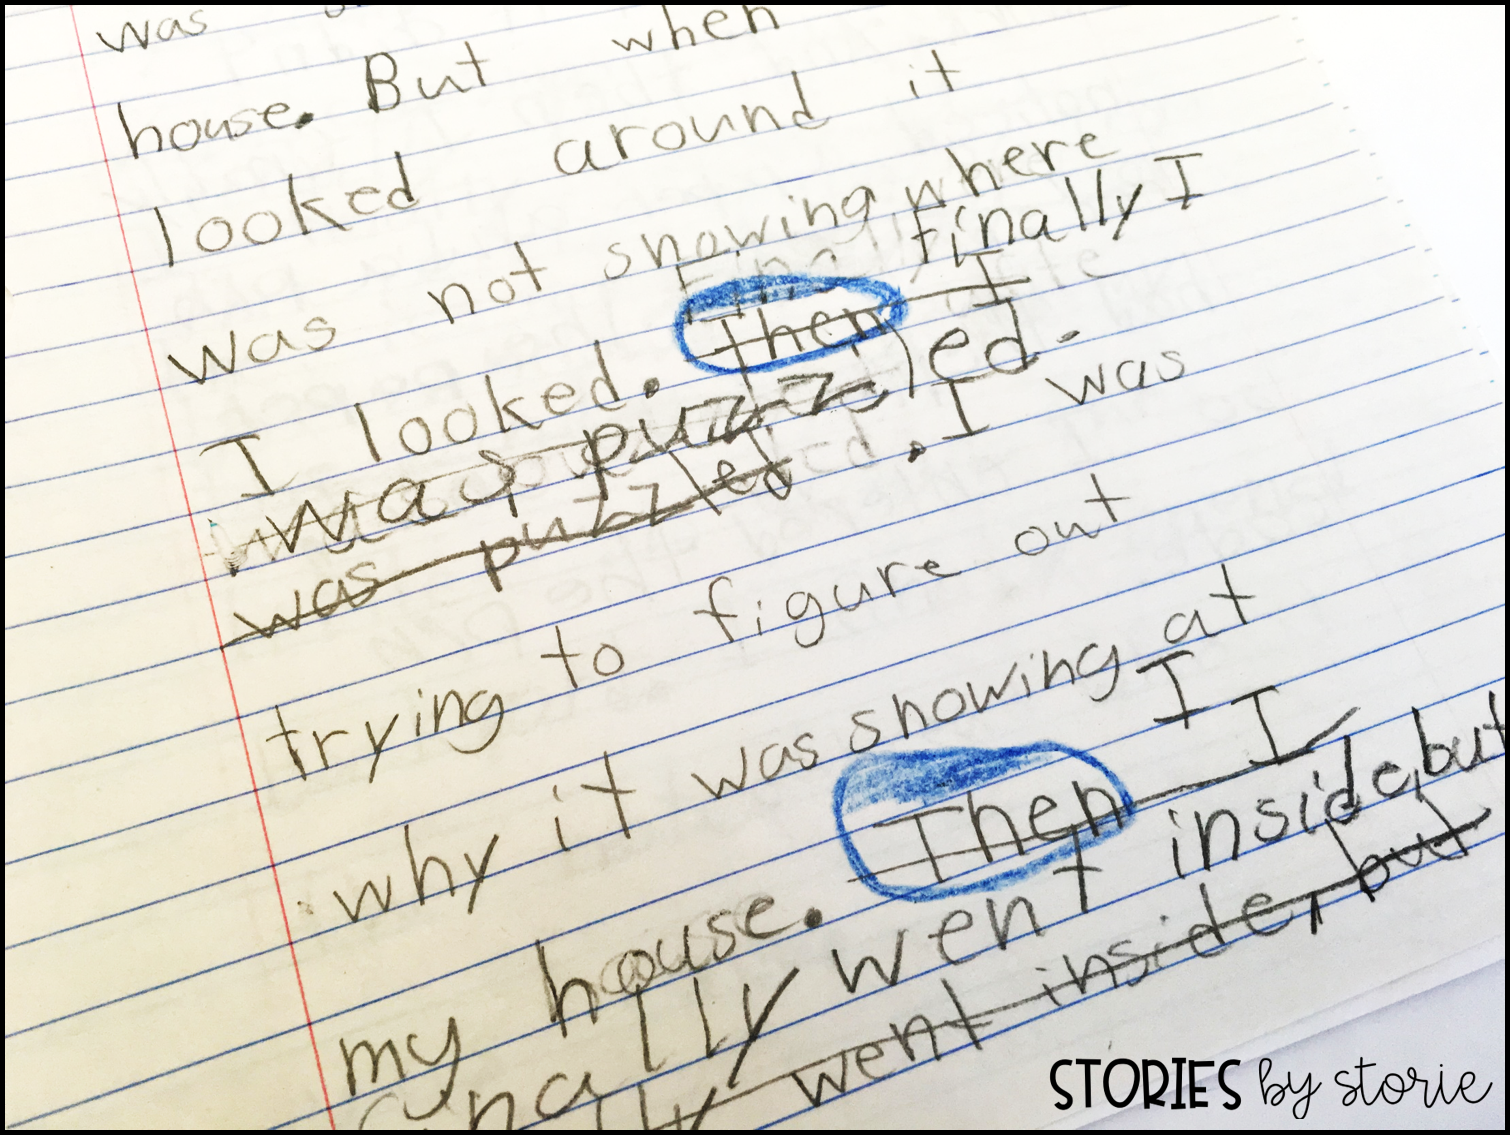 was
house. But when
looked around it
was not snowing where
finally I
I looked. Then I
was puzzled.
was puzzled. I was
trying to figure out
why it was snowing at
I
my house. Then I
finally went inside, but
finally went inside, but
STORIES by storie